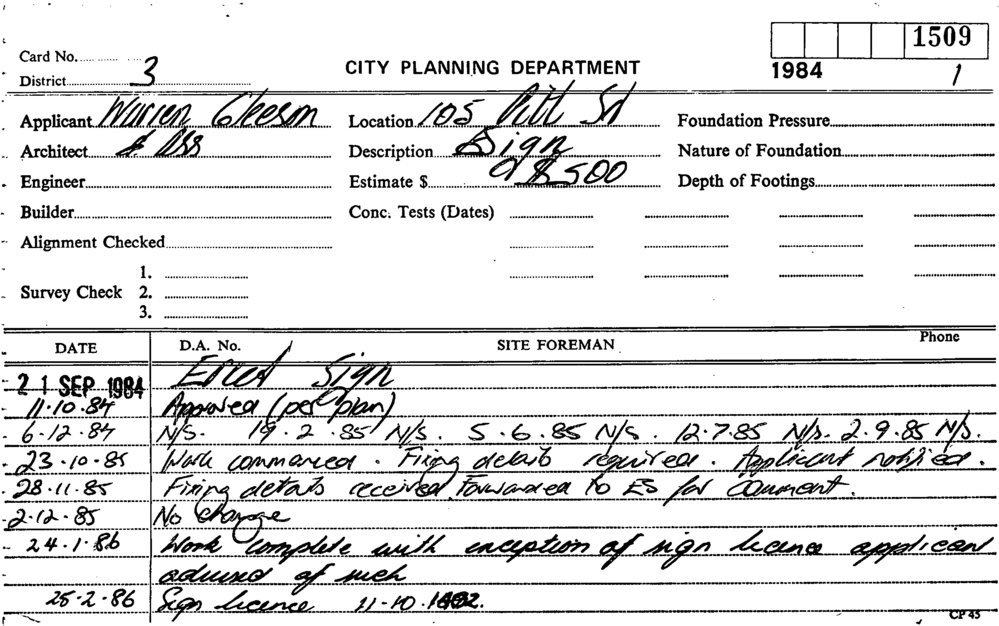 1509
Card No.
CITY PLANNING DEPARTMENT
1984 1
District 3
Applicant Warren Gleeson Location 105 Pitt St Foundation Pressure
Architect & Ass Description Sign Nature of Foundation
Engineer Estimate $ $500 Depth of Footings
Builder Conc. Tests (Dates)
Alignment Checked
1.
Survey Check 2.
3.
DATE D.A. No. SITE FOREMAN Phone
21 SEP 1984 Erect Sign
11.10.84 Approved (per plan)
6.12.84 N/S. 19.2.85 N/S. 5.6.85 N/S. 12.7.85 N/S. 2.9.85 N/S.
23.10.85 Work commenced. Fixing details required. Applicant notified.
28.11.85 Fixing details received forwarded to ES for comment.
2.12.85 No change
24.1.86 Work complete with exception of sign licence applicant
advised of such
25.2.86 Sign licence 11-10.
CP 45